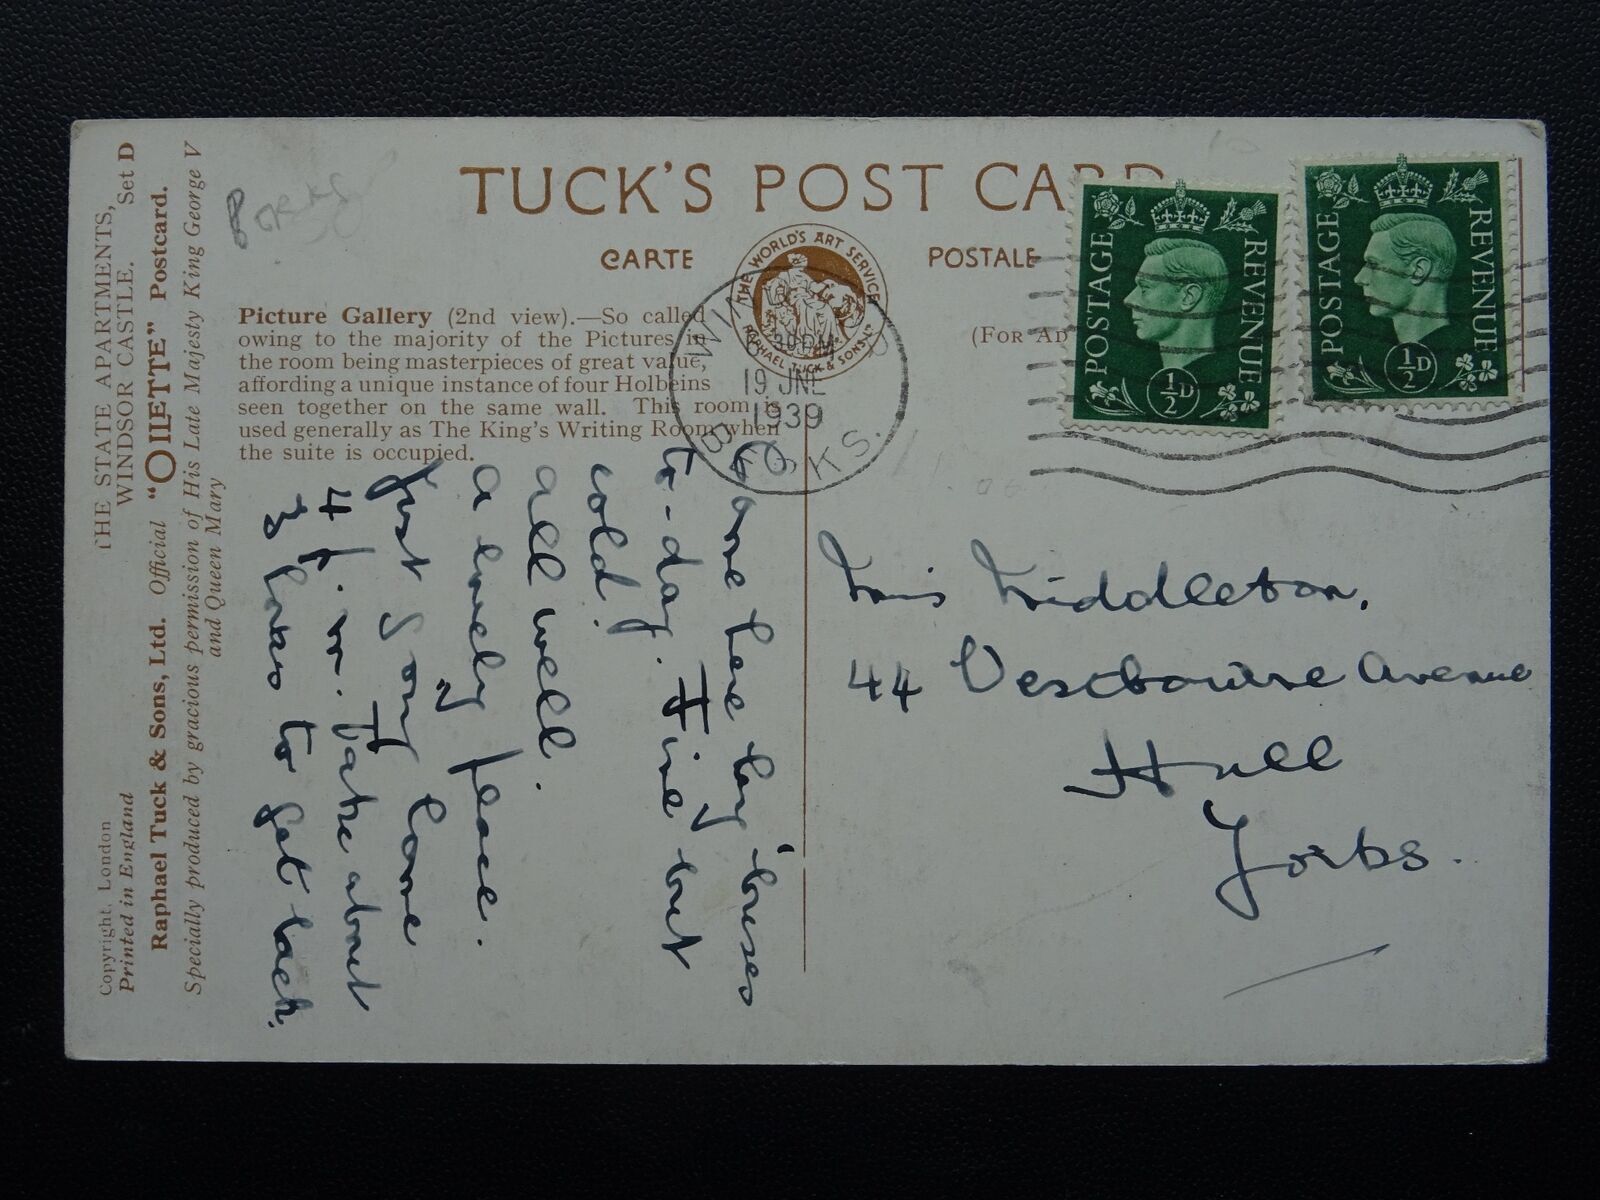 TUCK'S POST CARD
CARTE POSTALE
THE WORLD'S ART SERVICE
RAPHAEL TUCK & SONS LD
(FOR AD
Picture Gallery (2nd view).—So called
owing to the majority of the Pictures in
the room being masterpieces of great value,
affording a unique instance of four Holbeins
seen together on the same wall. This room is
used generally as The King's Writing Room when
the suite is occupied.
THE STATE APARTMENTS,
WINDSOR CASTLE. Set D
Raphael Tuck & Sons, Ltd. Official "OILETTE" Postcard.
Specially produced by gracious permission of His Late Majesty King George V
and Queen Mary
Copyright, London
Printed in England
BERKS
POSTAGE REVENUE
½D
POSTAGE REVENUE
½D
30 PM
19 JNE
1939
BERKS.
Come here by 'buses
to-day. Fine but
cold!
all well.
a lovely place.
Just going home
4 p.m. Take about
3 hours to get back.
Miss Middleton,
44 Westbourne Avenue
Hull
Yorks.